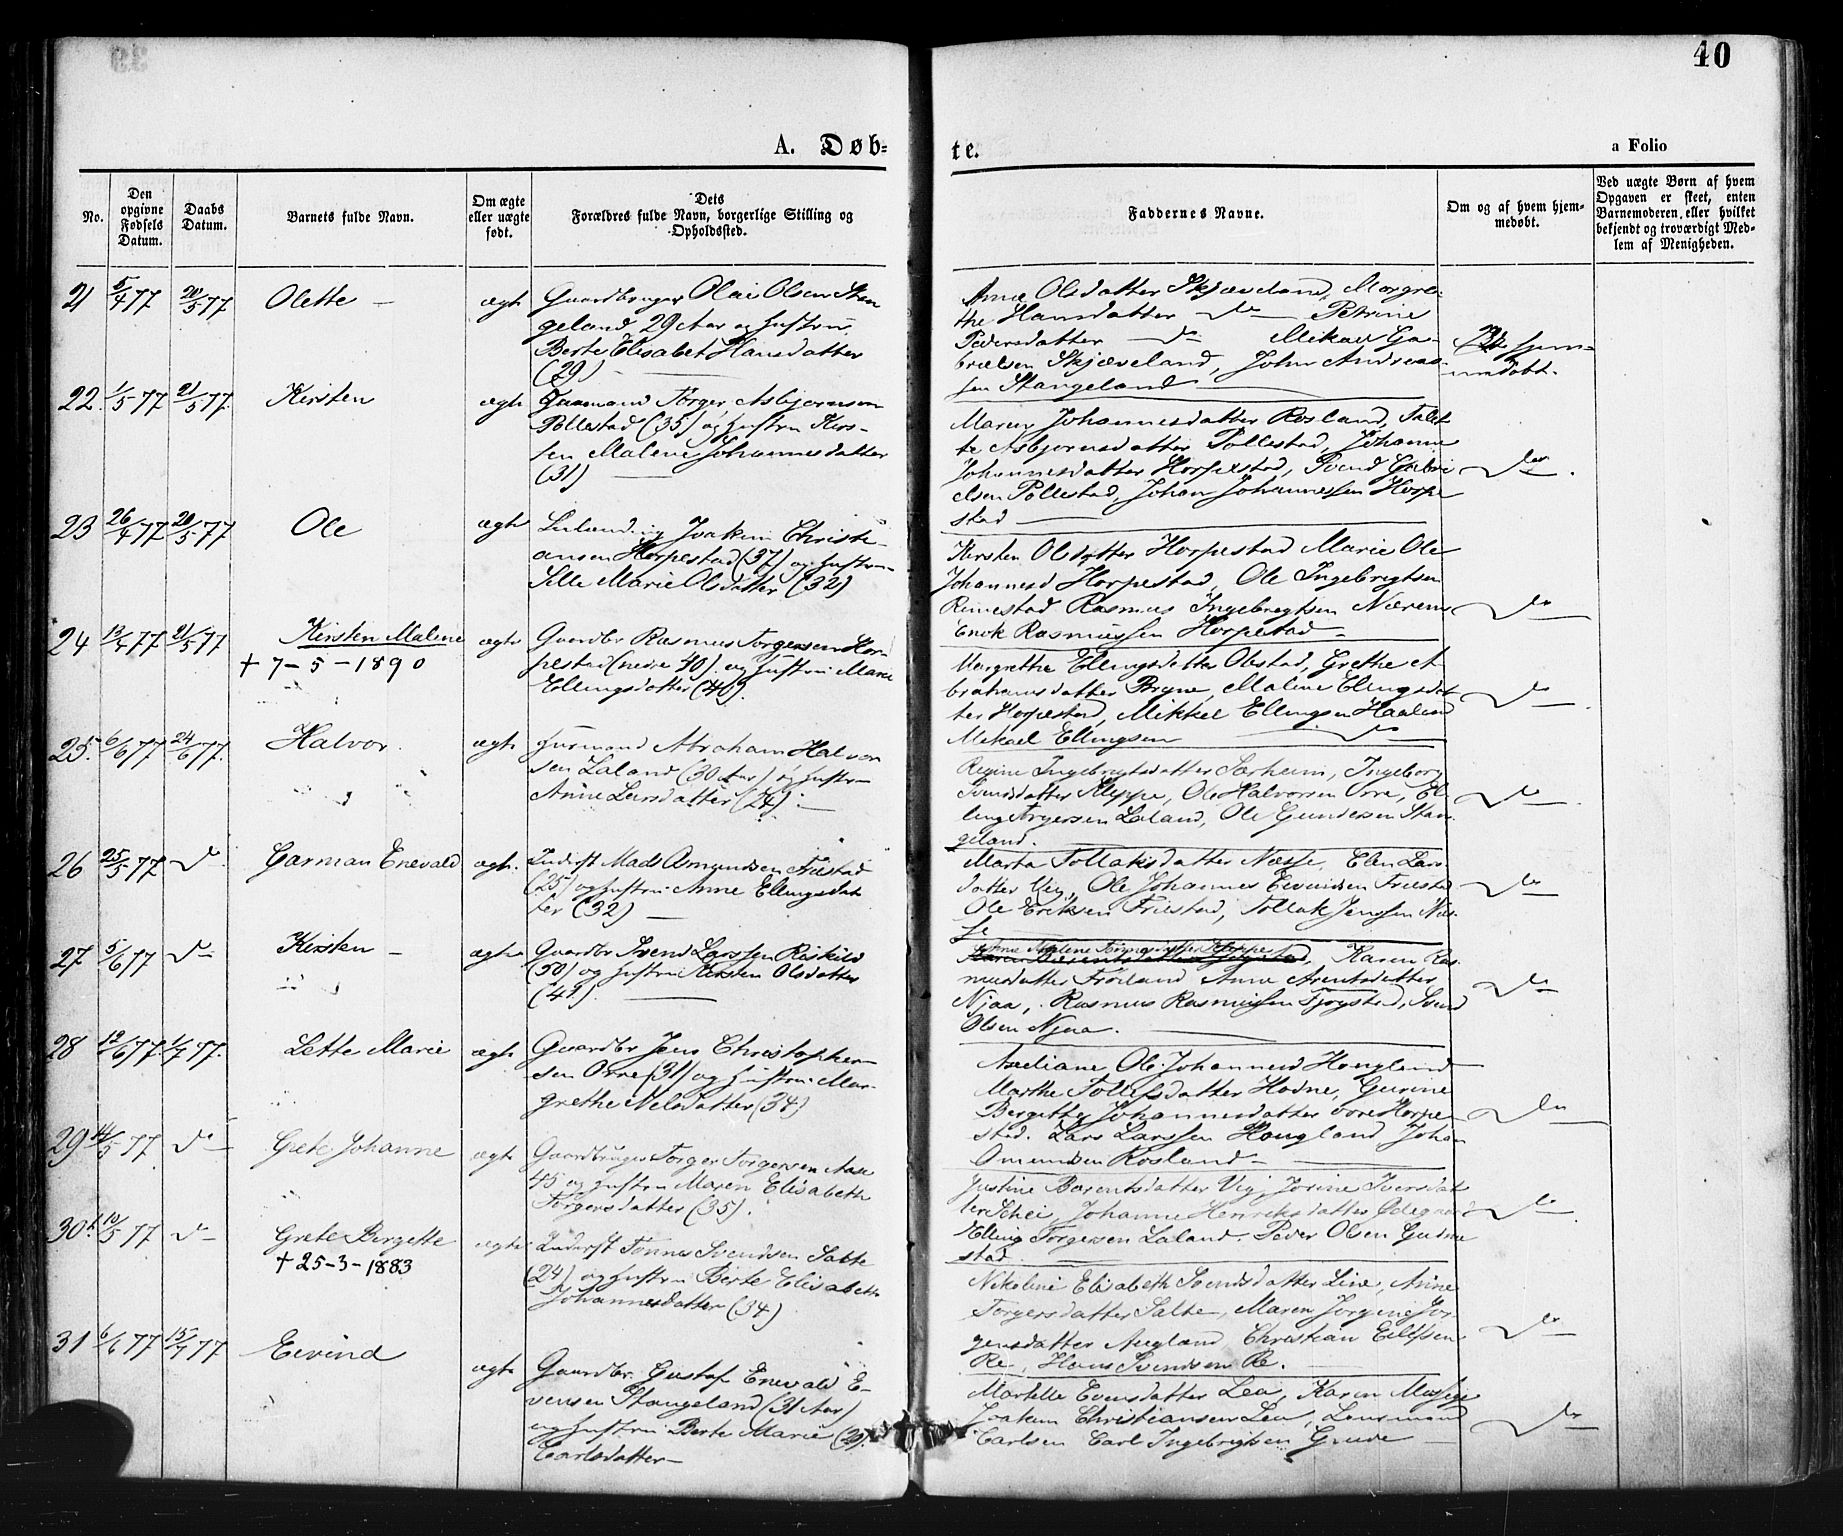 40
A. Døb-
te.
a Folio
No.
Den opgivne Fødsels Datum.
Daabs Datum.
Barnets fulde Navn.
Om ægte eller uægte født.
Dets Forældres fulde Navn, borgerlige Stilling og Opholdssted.
Faddernes Navne.
Om og af hvem hjem-
medøbt.
Ved uægte Børn af hvem
Opgaven er skeet, enten
Barnemoderen eller hvilket
bekjendt og troværdigt Med-
lem af Menigheden.
21 5/4 77 20/5 77 Olette – ægte Gaardbruger Olai Olsen Stan
geland, 29 Aar og Hustru
Berte Elisabet Hansdatter
(29)
Anne Olsdatter Skjæveland, Margre-
the Hansdatter do Petrine
Pedersdatter do Mikael Ga-
brielsen Skjæveland, John Andreas-
sen Stangeland
hjem-
medøbt.
22. 1/5 77 21/5 77. Kirsten ægte Gaamand Torger Asbjørnsen
Pollestad (35) og Hustru Kir-
sten Malene Johannesdatter
(31)
Maren Johannesdatter Rosland, Talet-
te Asbjørnsdatter Pollestad, Johanne
Johannesdatter Horpestad, Svend Gabri
elsen Pollestad, Johan Johannessen Horpe
stad
do
23 26/4 77 20/5 77 Ole ægte Joakim Christi-
ansen Horpestad (37) og Hustru
Sille Marie Olsdatter (32)
Kirsten Olsdatter Horpestad Marie Ole
Johannesd Horpestad, Ole Ingebregtsen
Rimestad Rasmus Ingebregtsen Nærem
Enok Rasmussen Horpestad –
do
24 13/4 77 21/5 77 Kirsten Malene ægte Gaardbr Rasmus Torgersen Hor-
† 7-5-1890
pestad (nedre 40) og Hustru Marie
Ellingsdatter (40).
Margrethe Ellingsdatter Obstad, Grethe A-
brahamsdatter Bryne, Malene Ellingsdat
ter Horpestad, Mikkel Ellingsen Haaland
Mikael Ellingsen do
do
25. 6/6 77 24/6 77. Halvor. ægte Husmand Abraham Halvor
sen Laland (30 Aar) og Hustru
Anne Larsdatter (24). –
Regine Ingebregtsdatter Særheim, Ingeborg
Svendsdatter Kleppe, Ole Halvorsen Orre, El-
ling Torgersen Laland, Ole Gundersen Stan-
geland.
do
26 25/5 77 do Garman Enevald ægte. Inderst Mads Asmundsen Friestad
(25) og Hustru Anne Ellingsdat
ter (32)
Marta Tollaksdatter Næsse, Elen Lars-
datter Vig, Ole Johannes Eivindsen Friestad
Ole Eriksen Friestad, Tollak Jenssen Næs-
se
do
27 5/6 77 do Kirsten – ægte Gaardbr Svend Larssen Riskild
(50) og Hustru Kirsten Olsdatter
(41)
Ane Malene Tønnesdatter Horpestad
Karen Ras-
musdatter Frøiland Anna Arentsdatter
Njaa, Rasmus Rasmussen Tjøgstad, Svend
Olsen Njaa.
do
28 12/6 77 1/7 77. Lette Marie ægte Gaardbr Jens Christopher-
sen Orre (31) og Hustru Mar-
grethe Nelsdatter (34)
Axeliane Ole Johannesd Haugland
Marthe Tollefsdatter Hodne, Gurine
Bergitte Johannesdatter övre Horpe-
stad. Lars Larssen Haugland, Johan
Omundsen Rosland –
do
29 14/5 77 do Grete Johanne ægte Gaardbruger Torger Torgersen Aase
45 og Hustru Maren Elisabeth
Torgersdatter (35).
Justine Barentsdatter Vig, Jorine Iversdat
ter Schei, Johanne Henriksdatter Ødegaard
Elling Torgersen Laland. Peder Olsen Gudme
stad
do
30. 10/5 77 do Grete Bergette ægte Inderst Tønnes Svendsen Salte
† 25-3-1883
(24) og Hustru Berte Elisabeth
Johannesdatter (34)
Nikoline Elisabeth Svendsdatter Line, Anne
Torgersdatter Salte, Maren Jorgine Jør-
gensdatter Augland, Christian Eilefsen
Re, Hans Svendsen Re.
do
31 6/6 77 15/7 77 Eivind ægte Gaardbr. Gustaf Enevald E-
vensen Stangeland (31 Aar)
og Hustru Berte Marie
Carlsdatter –
Martelle Evensdatter Lea, Karen
Joakim Christiansen Lea, Lensmand
Carlsen Carl Ingebrigtsen Grude
do